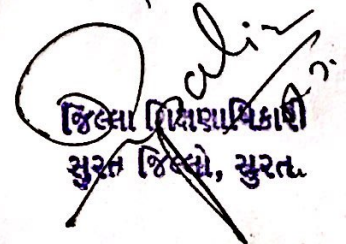 જિલ્લા શિક્ષણાધિકારી
સુરત જિલ્લો, સુરત.